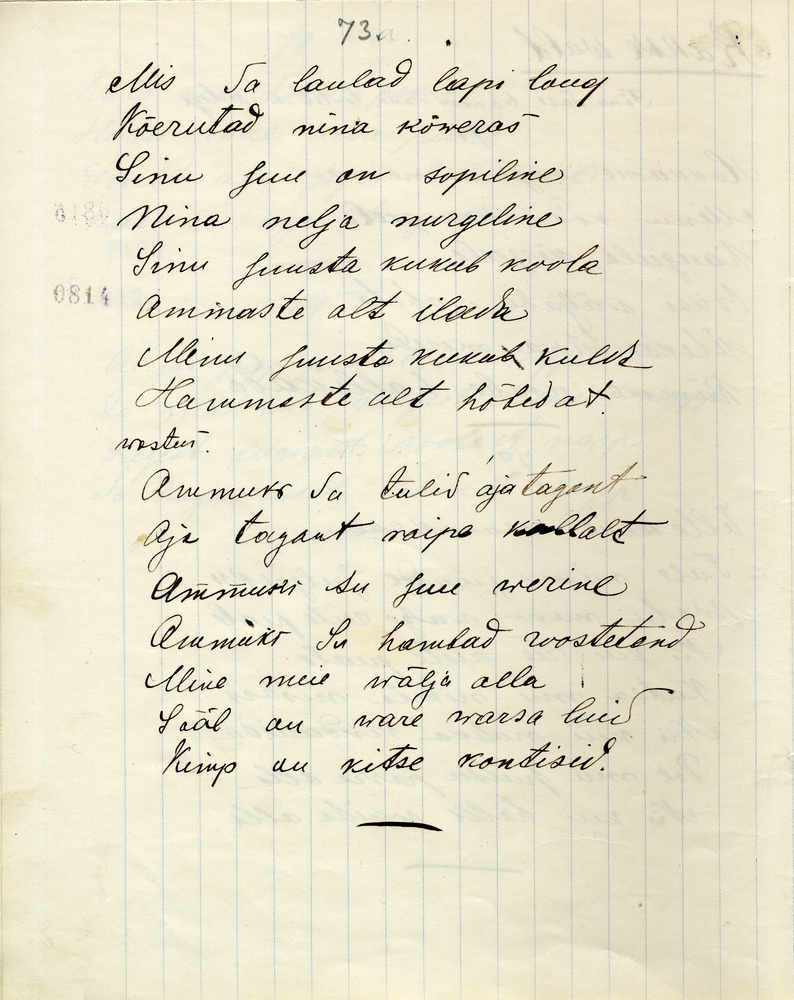 73a
Mis Sa laulad lapi loug
Kõerutad nina kõweras
Sinu suu on sopiline
Nina nelja nurgeline
Sinu suusta kukub koola
0814
Ammaste alt ilada
Minu suusta kukub kulda
Hammaste alt hõbedat.
wastus.
Ammuks Sa tulid aja tagant
Aja tagant raipe kallalt
Ammuks su suu werine
Ammuks Su hambad roostetand
Mine meie wälja alla
Sääl on ware warsa luid
Kimp on kitse kontisid.